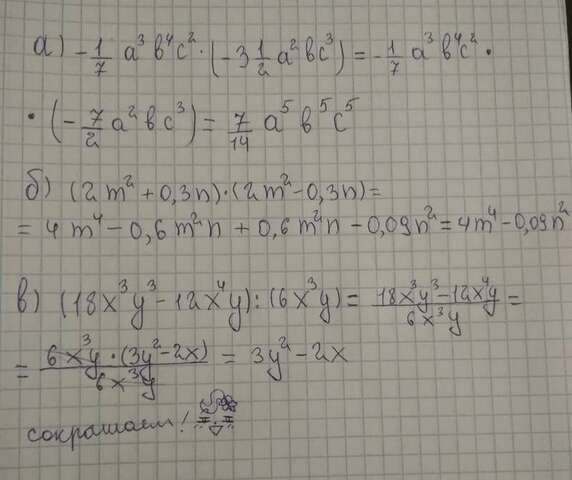 а) -1/7 a³b⁴c² · (-3 1/2 a²bc³) = -1/7 a³b⁴c² ·
· (-7/2 a²bc³) = 7/14 a⁵b⁵c⁵
б) (2m² + 0,3n) · (2m² - 0,3n) =
= 4m⁴ - 0,6m²n + 0,6m²n - 0,09n² = 4m⁴ - 0,09n²
в) (18x³y³ - 12x⁴y) : (6x³y) = (18x³y³ - 12x⁴y)/(6x³y) =
= (6x³y · (3y² - 2x))/(6x³y) = 3y² - 2x
сокращаем!